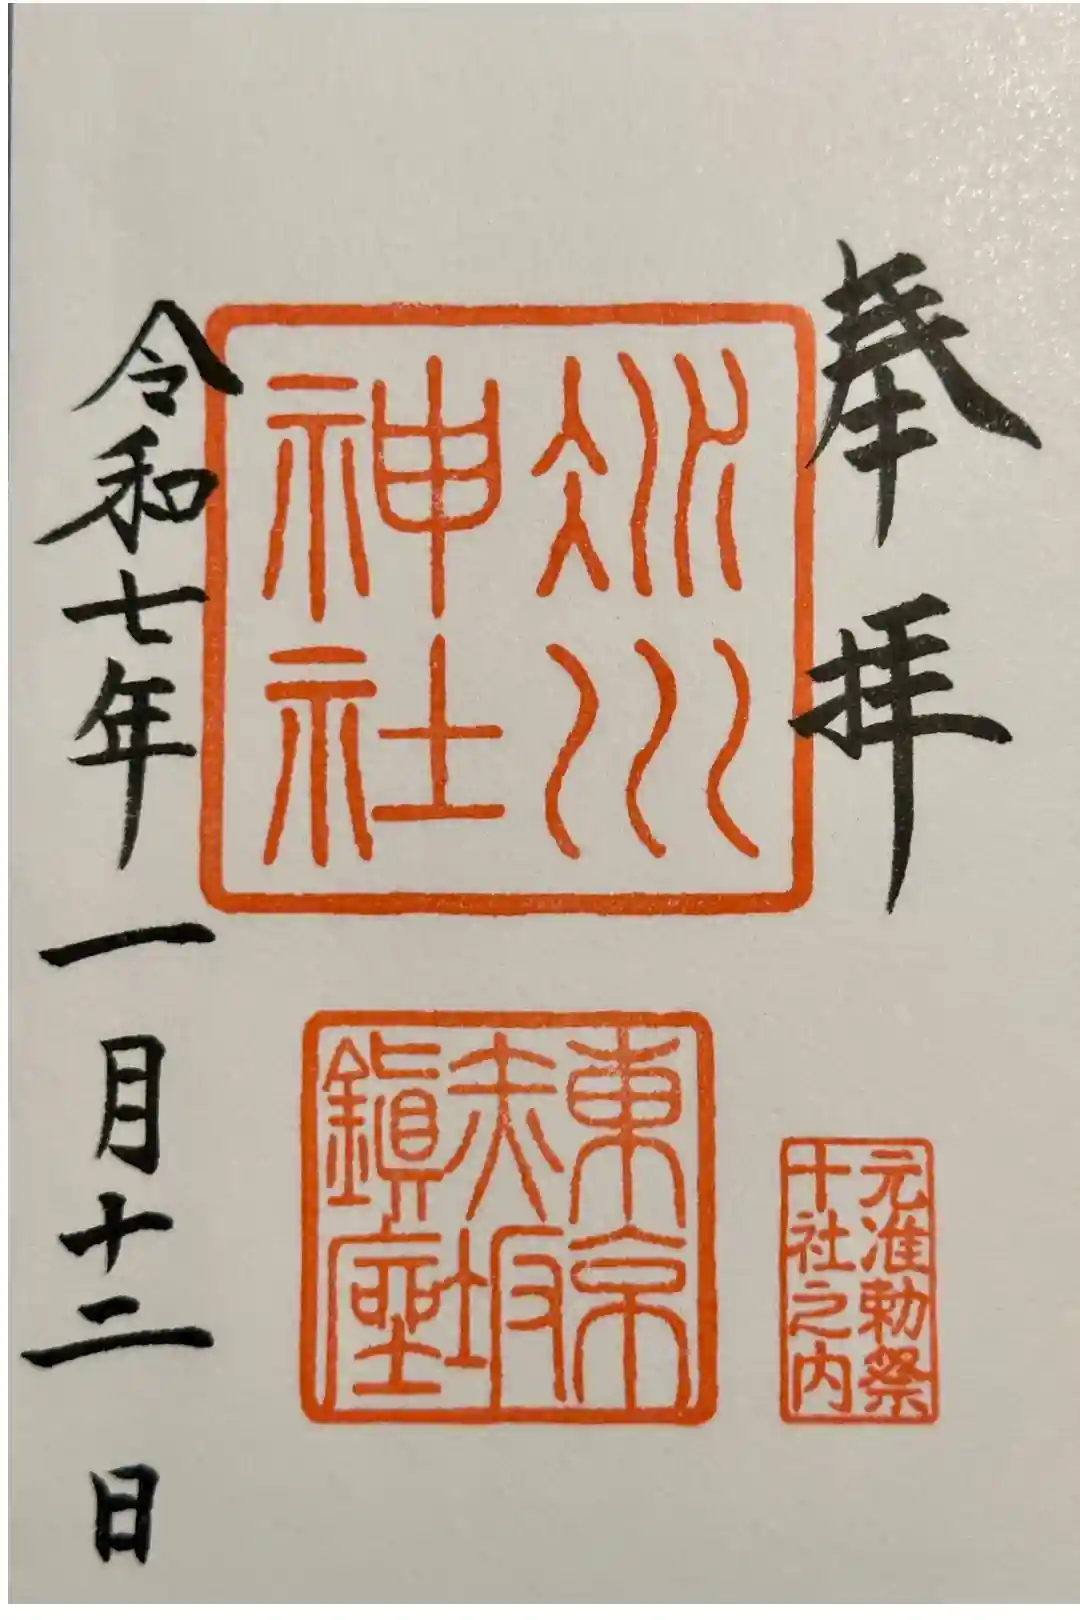 奉拝
元准勅祭
十社之内
冰川
神社
東京
赤坂
鎭座
令和七年一月十二日